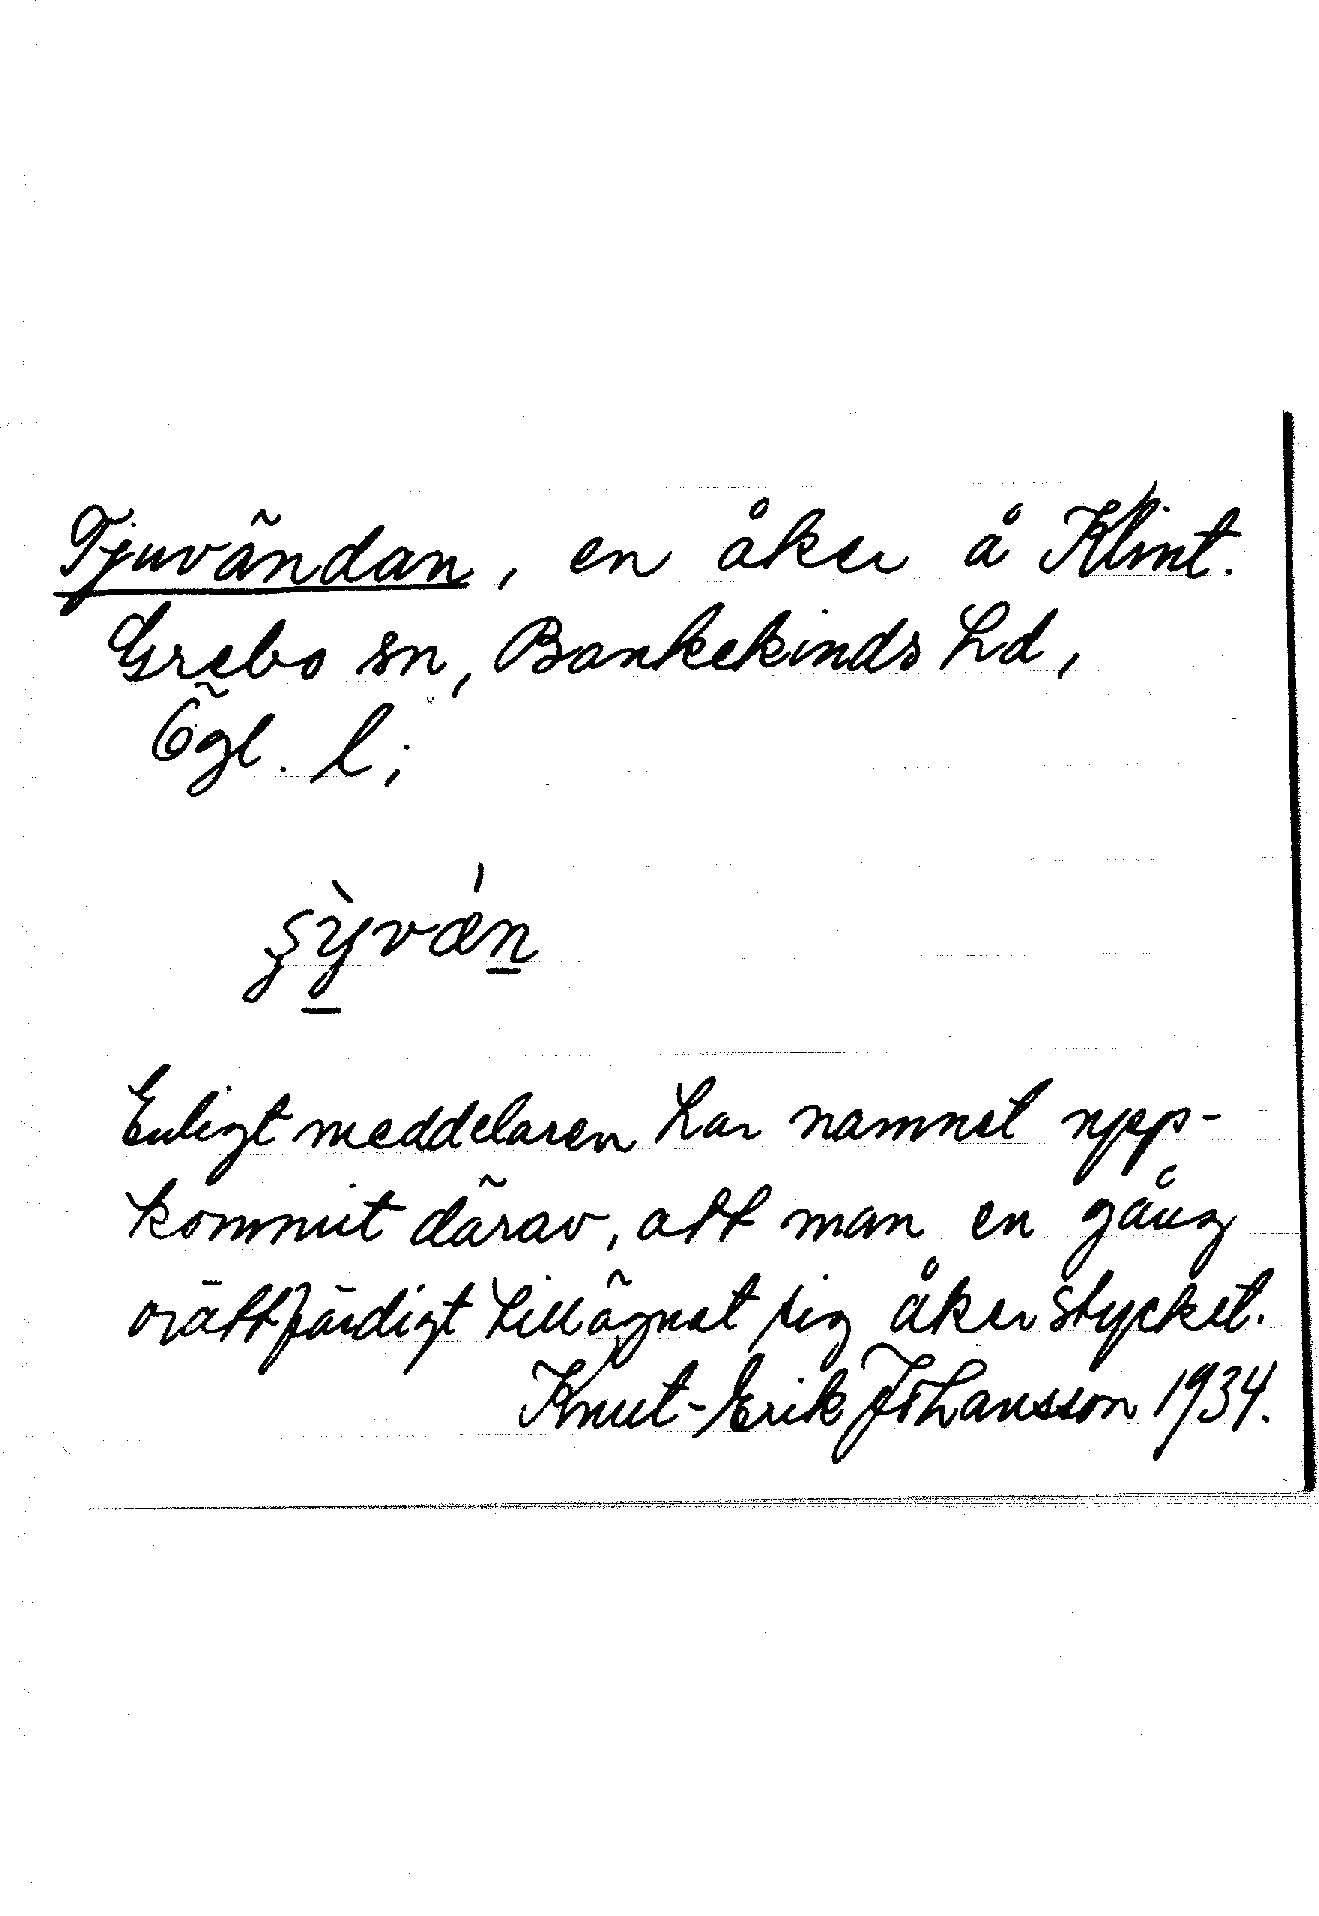 Tjuvändan, en åker å Klint.
Grebo sn, Bankekinds hd,
Ögl. l;
Enligt meddelaren har namnet upp-
kommit därav, att man en gång
orättfärdigt tillägnat sig åkerstycket.
Knut-Erik Johansson 1934.